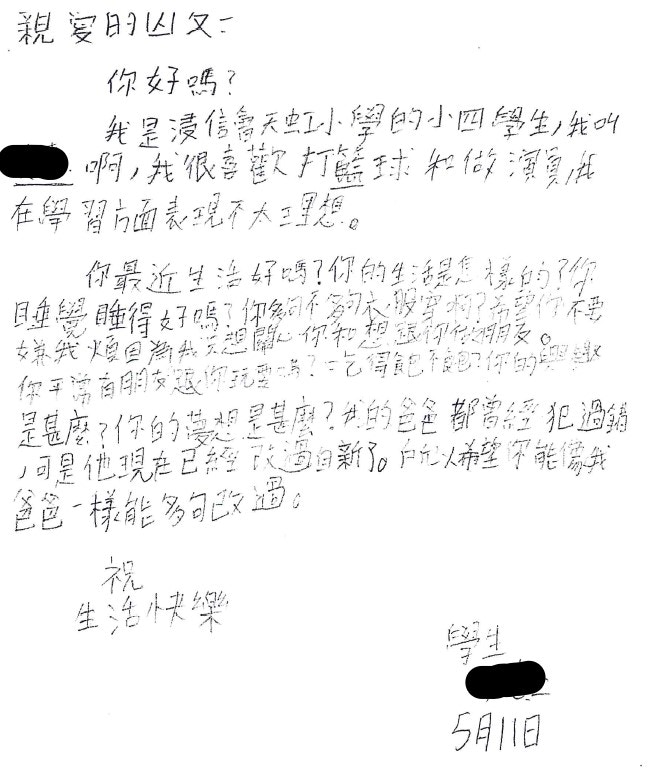 親愛的囚友：
你好嗎？
我是浸信會天虹小學的小四學生，我叫
啊，我很喜歡打籃球和做演員，我
在學習方面表現不太理想。
你最近生活好嗎？你的生活是怎樣的？你
睡覺睡得好嗎？你夠不夠衣服穿啊？希望你不要
嫌我煩因為我只想關心你和想跟你做朋友。
你平常有朋友跟你玩耍嗎？吃得飽不飽？你的興趣
是甚麼？你的夢想是甚麼？我的爸爸都曾經犯過錯
，可是他現在已經改過自新了。所以希望你能像我
爸爸一樣能夠改過。
祝
生活快樂
學生
5月11日